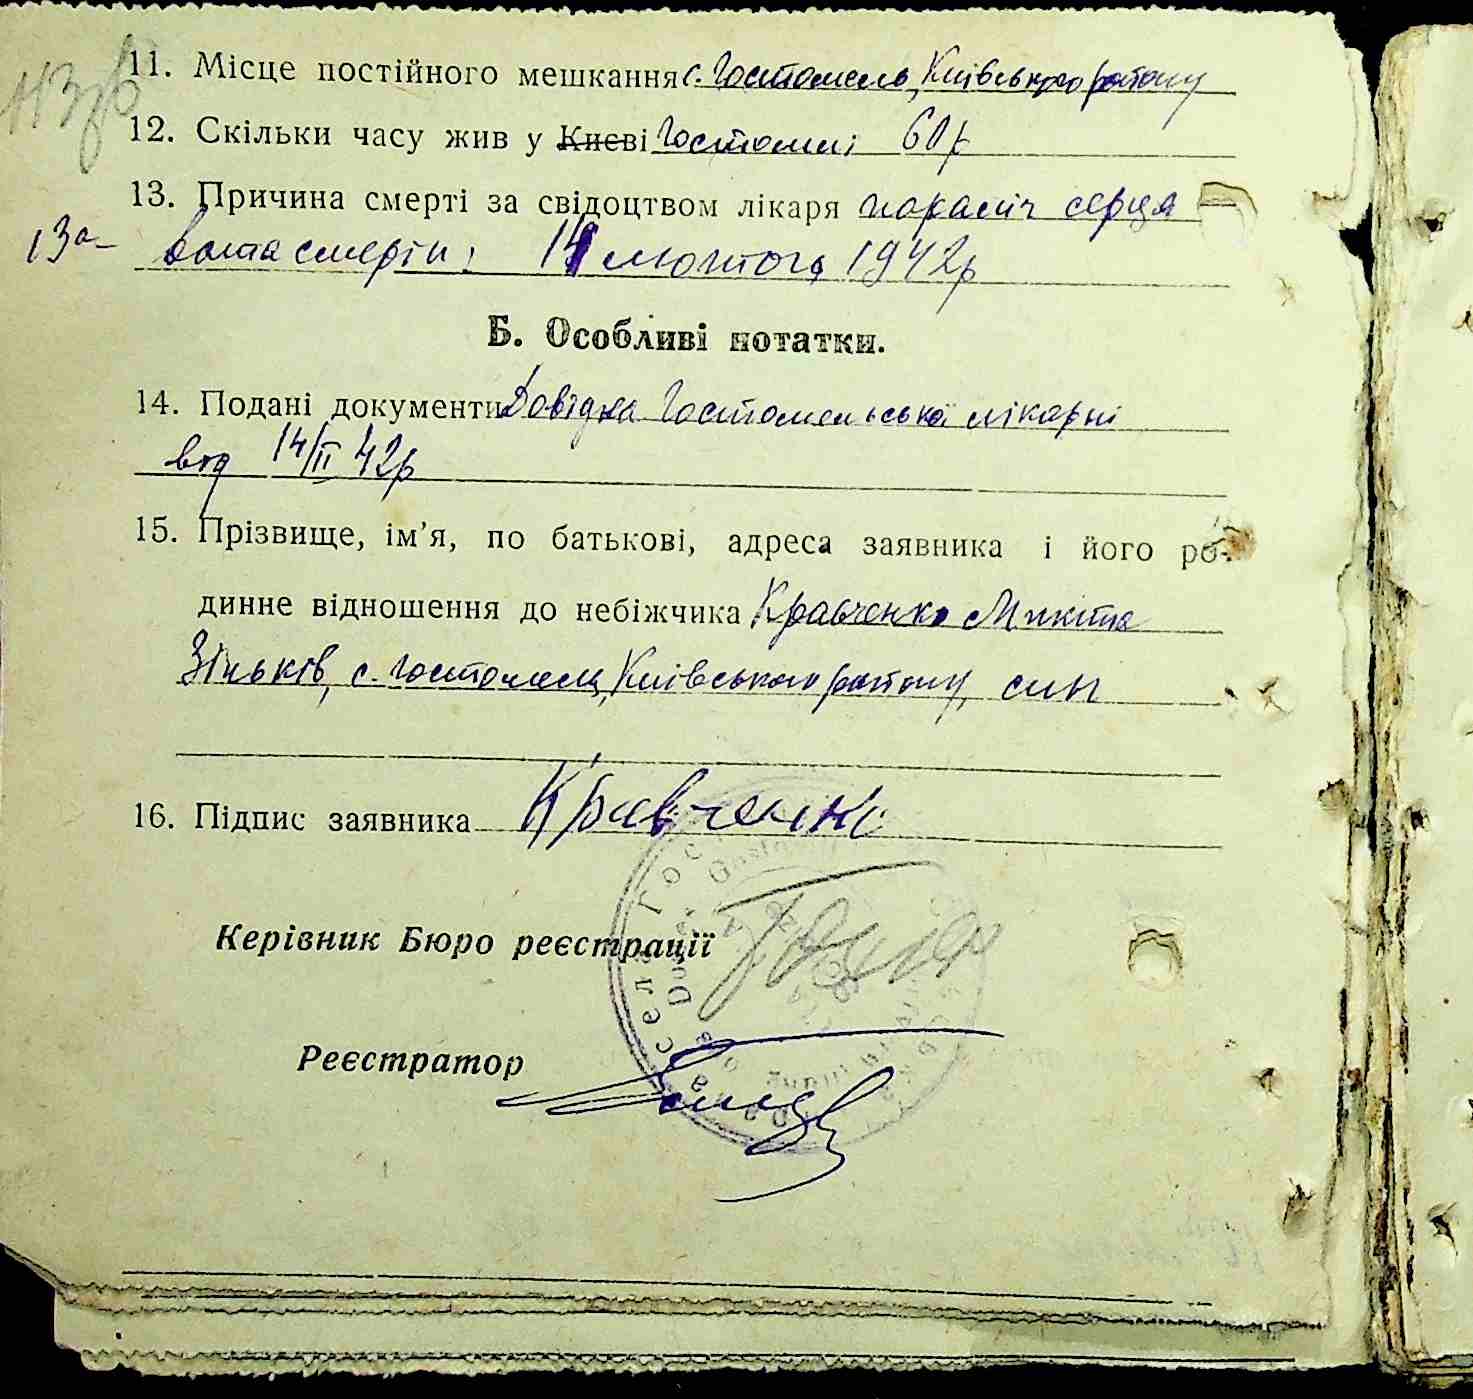 11. Місце постійного мешкання с. Гостомель, Київського району
12. Скільки часу жив у Києві Гостомлі 60 р
13. Причина смерті за свідоцтвом лікаря параліч серця
13а- Дата смерти: 14 лютого 1942 р
Б. Особливі нотатки.
14. Подані документи Довідка Гостомельської лікарні
від 14/II 42 р
15. Прізвище, ім’я, по батькові, адреса заявника і його ро-
динне відношення до небіжчика Кравченко Микита
Зіньків, с. Гостомель, Київського району, син
16. Підпис заявника Кравченко
Керівник Бюро реєстрації
Реєстратор